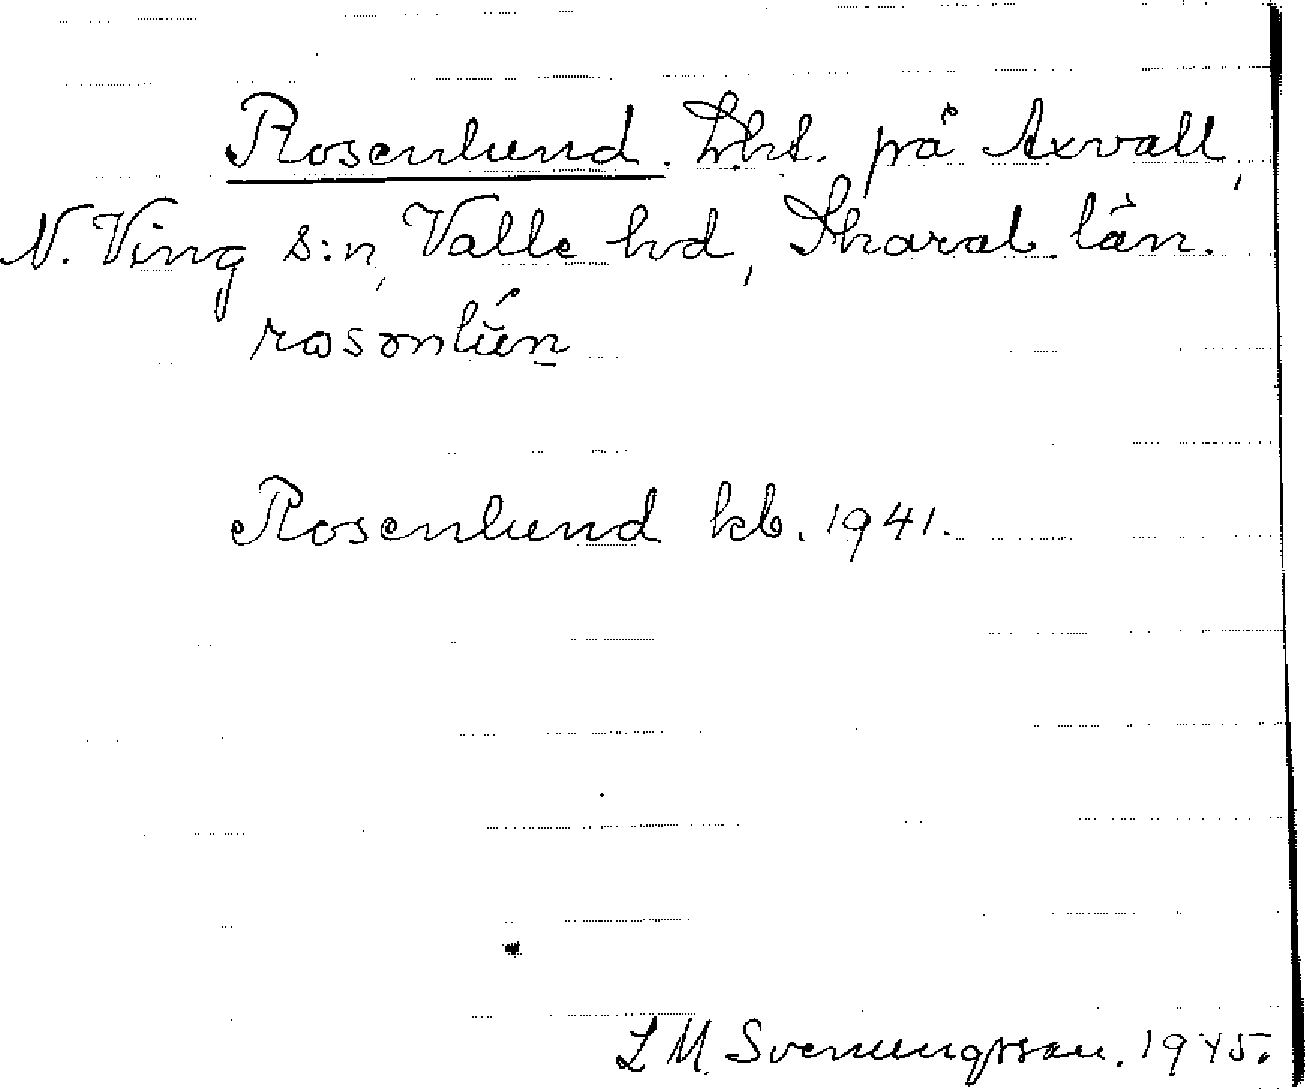 Rosenlund. Lht. på Axvall,
N. Ving s:n, Valle hd, Skarab. län.
rosənlŭ́n
Rosenlund kb. 1941.
L M Svenungsson. 1945.